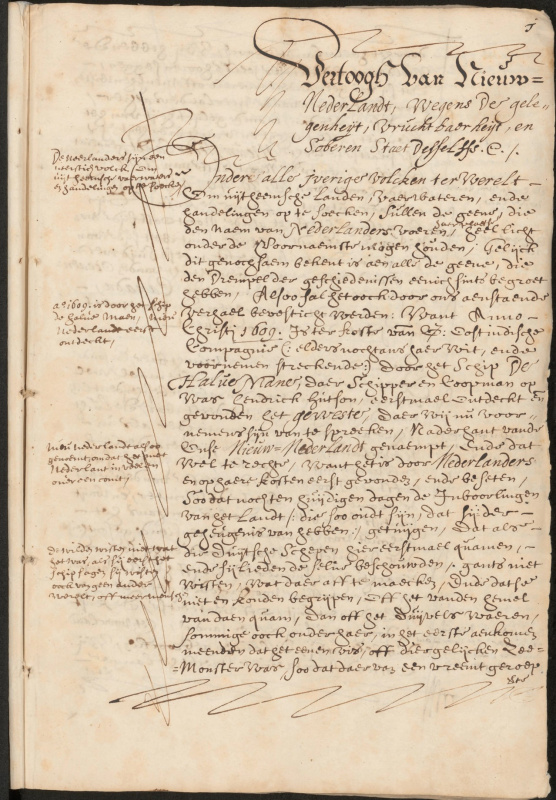 Vertoogh Van Nieuw=
Nederlandt, Wegens Des gele-
genheyt, Vruchtbaerheyt, en
Soberen Staet Desselfs.
De Neerlanders sijn een
neerstich volck Om
uijtheemsche vaerwateren
en handelinge op te soecken
Onder alle sverige volcken ter werelt
Om uijtheemsche Landen, Vaerwateren, ende
handelingen op te soecken, sullen de geene, die
den naem van Nederlanders voeren, heel licht
onder de Voornaemste mogen houden, Gelijck
dit genoechsaem bekent is aen alle de geene, die
den Drempel der geschiedenissen eenichsints begroet
hebben, Alsoo sal het oock door ons aenstaende
verhael bevesticht werden: Want Anno
Christi 1609. Is ter koste van Oostindische
Compagnie (: elders nochtans haer wit, ende
voornemen streckende:) door het Schip De
Halve Mane, daer Schipper en Coopman op
Was Hendrick Hutson, eerstmael Ontdeckt en
gevonden het geweste, daer Wij nu voor-
nemens sijn van te spreecken, Naderhant vande
Onse Nieuw-Nederlandt genaempt, Ende dat
Wel te rechte, Want het is door Nederlanders
en op haere kosten eerst gevonden, ende beseten,
Soo dat noch ten huijdigen dagen de Inboorlingen
van het Landt (: die soo oudt sijn, dat sij der
geheugenis van hebben:) getuijgen, Dat als
die Duijtsche Schepen hier eerstmael quamen,
ende sij lieden de selve beschouwden, gants niet
Wisten, Wat daer aff te maecken, Ende datse
niet en konden begrijpen, Oft het vanden hemel
van daen quam, Dan off het Duijvels Waeren,
sommige oock onder haer, in het eerste aenkomen
meenden dat het eenen vis, off diergelijcken Zee=
=Monster Was, soo dat daer van een vreemt geroep
Ao 1609. is door het schip
de halve Maen,
Nederlandt eerst
ontdeckt,
Nieu nederlandt alsoo
genoemt, omdat het met
Nederlant in veelen
over een comt,
de wilde wisten niet wat
het was, als sij eerst het
schip sagen,